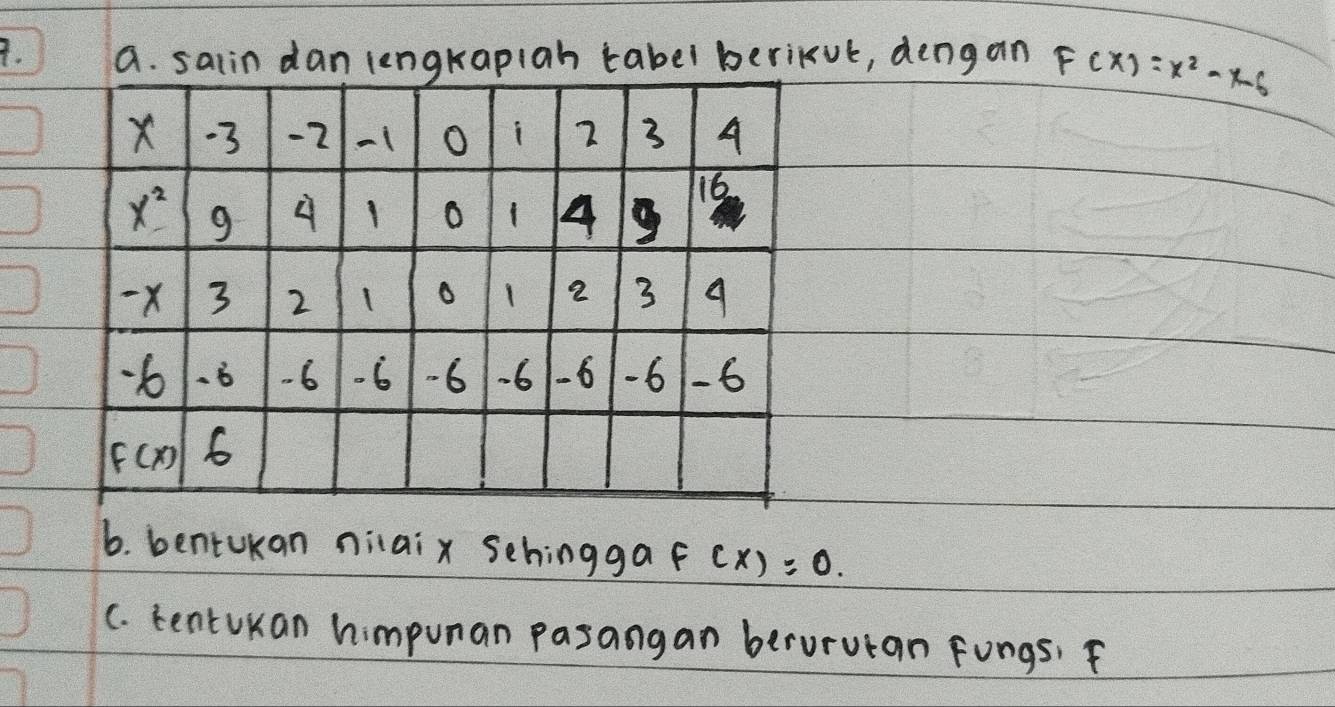 7. a. salin dan lengkaplah tabel berikut, dengan F(x) = x² - x - 6
x -3 -2 -1 0 1 2 3 4
x² 9 4 1 0 1 4 9 16
-x 3 2 1 0 1 2 3 4
-6 -6 -6 -6 -6 -6 -6 -6 -6
F(x) 6
b. bentukan nilai x sehingga F (x) = 0.
c. tentukan himpunan pasangan berurutan fungsi F